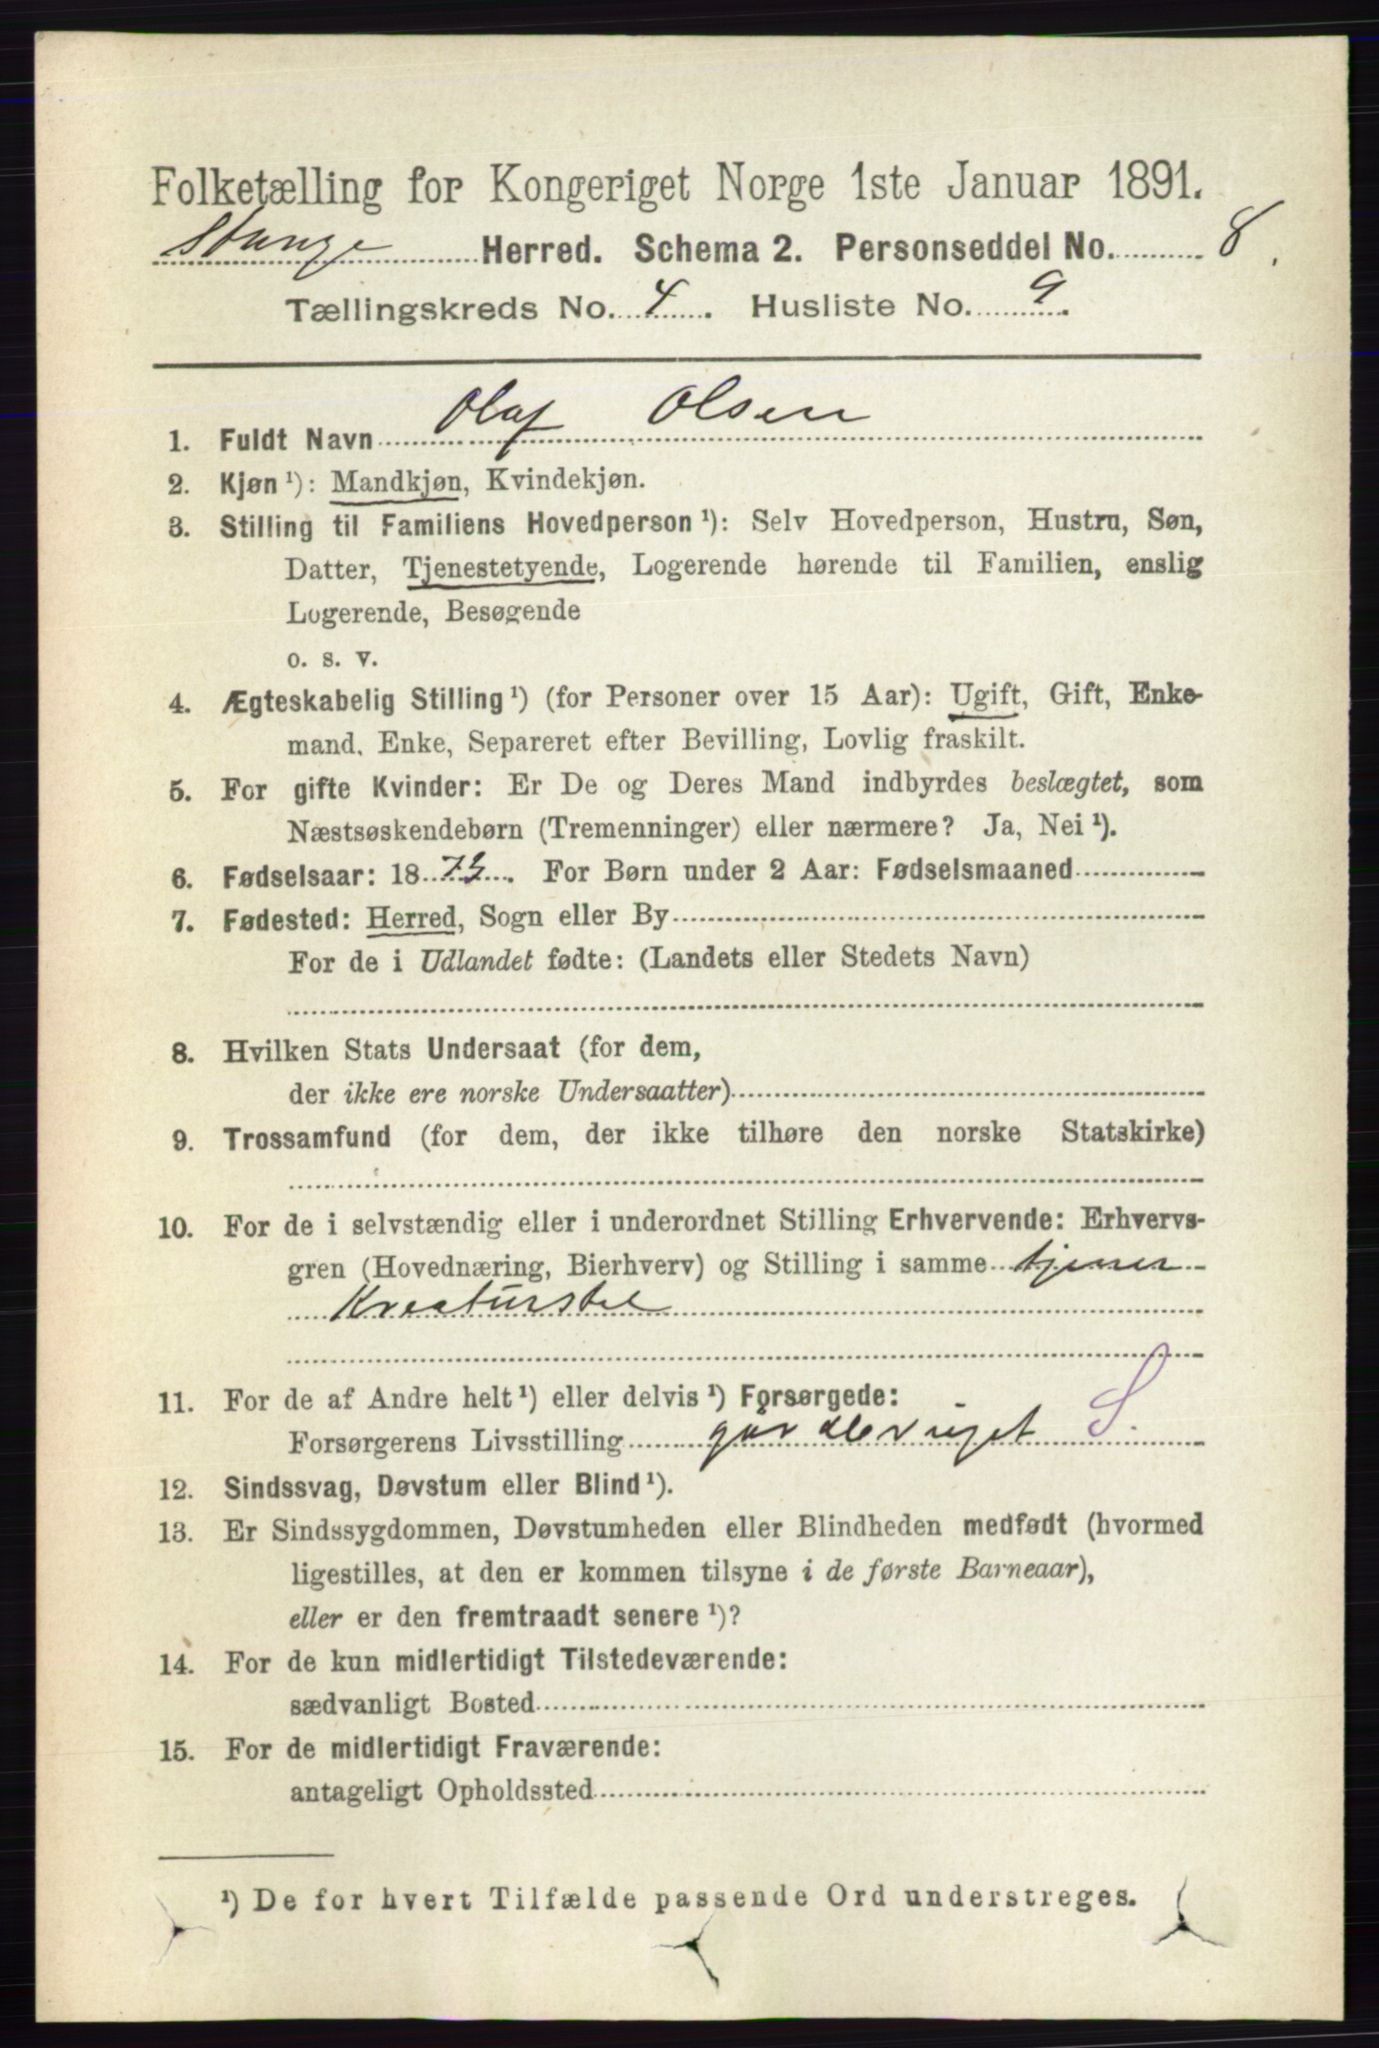 Folketælling for Kongeriget Norge 1ste Januar 1891.
Stange Herred. Schema 2. Personseddel No. 8.
Tællingskreds No. 4. Husliste No. 9.
1. Fuldt Navn Olaf Olsen
2. Kjøn ¹): Mandkjøn, Kvindekjøn.
3. Stilling til Familiens Hovedperson ¹): Selv Hovedperson, Hustru, Søn,
Datter, Tjenestetyende, Logerende hørende til Familien, enslig
Logerende, Besøgende
o. s. v.
4. Ægteskabelig Stilling ¹) (for Personer over 15 Aar): Ugift, Gift, Enke-
mand, Enke, Separeret efter Bevilling, Lovlig fraskilt.
5. For gifte Kvinder: Er De og Deres Mand indbyrdes beslægtet, som
Næstsøskendebørn (Tremenninger) eller nærmere? Ja, Nei ¹).
6. Fødselsaar: 1873. For Børn under 2 Aar: Fødselsmaaned
7. Fødested: Herred, Sogn eller By
For de i Udlandet fødte: (Landets eller Stedets Navn)
8. Hvilken Stats Undersaat (for dem,
der ikke ere norske Undersaatter)
9. Trossamfund (for dem, der ikke tilhøre den norske Statskirke)
10. For de i selvstændig eller i underordnet Stilling Erhvervende: Erhvervs-
gren (Hovednæring, Bierhverv) og Stilling i samme tjener
Kreaturstel
11. For de af Andre helt ¹) eller delvis ¹) Forsørgede:
Forsørgerens Livsstilling S.
12. Sindssvag, Døvstum eller Blind ¹).
13. Er Sindssygdommen, Døvstumheden eller Blindheden medfødt (hvormed
ligestilles, at den er kommen tilsyne i de første Barneaar),
eller er den fremtraadt senere ¹)?
14. For de kun midlertidigt Tilstedeværende:
sædvanligt Bosted
15. For de midlertidigt Fraværende:
antageligt Opholdssted
¹) De for hvert Tilfælde passende Ord understreges.